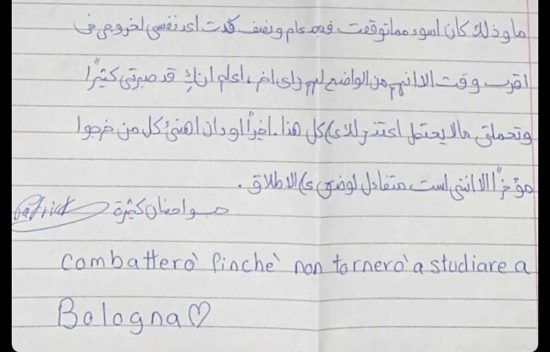 ما وذلك كان اسوء مما توقعت فبعد عام ونصف كدت اعد نفسي لخروجي في
اقرب وقت الا انهم من الواضح لهم راي اخر، اعلم انكِ قد صبرتي كثيرًا
وتحملتي ما لا يحتمل اعتذر لكِ كل هذا. اخيرًا اود ان اهنئ كل من خرجوا
مؤخرًا الا انني لست متفائل لوضعي الاطلاق.
احضان كثيرة Patrick
combatterò finchè non tornerò a studiare a
Bologna♡